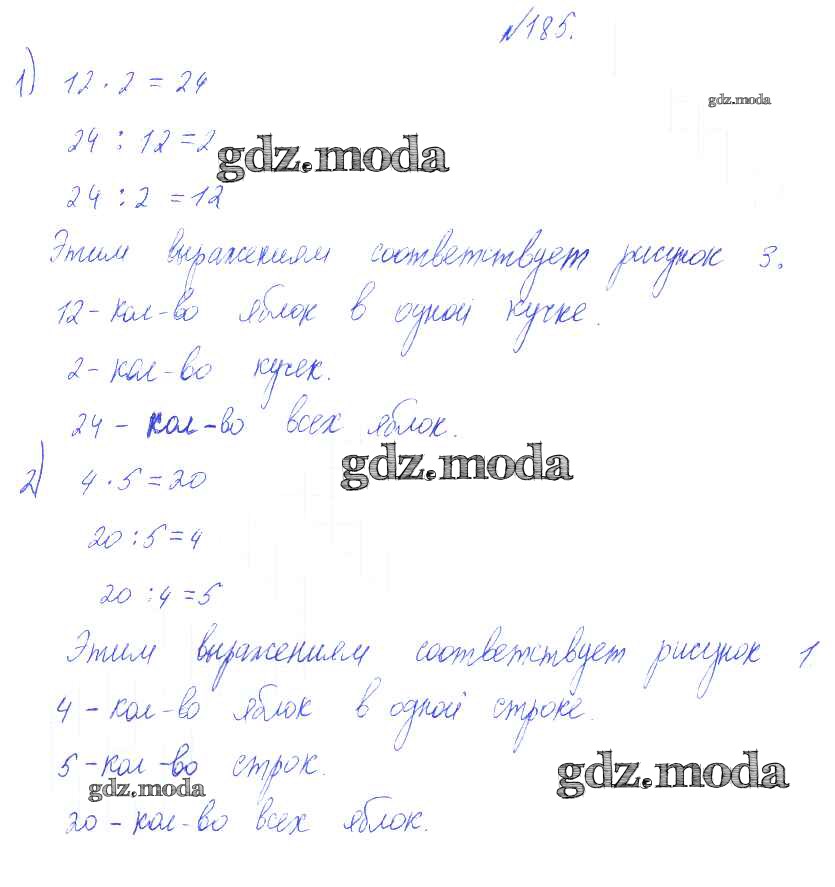 №185.
1) 12 · 2 = 24
gdz.moda
24 : 12 = 2
gdz.moda
24 : 2 = 12
Этим выражениям соответствует рисунок 3.
12 - кол-во яблок в одной кучке.
2 - кол-во кучек.
24 - кол-во всех яблок.
gdz.moda
2) 4 · 5 = 20
20 : 5 = 4
20 : 4 = 5
Этим выражениям соответствует рисунок 1
4 - кол-во яблок в одной строке.
5 - кол-во строк.
gdz.moda
gdz.moda
20 - кол-во всех яблок.